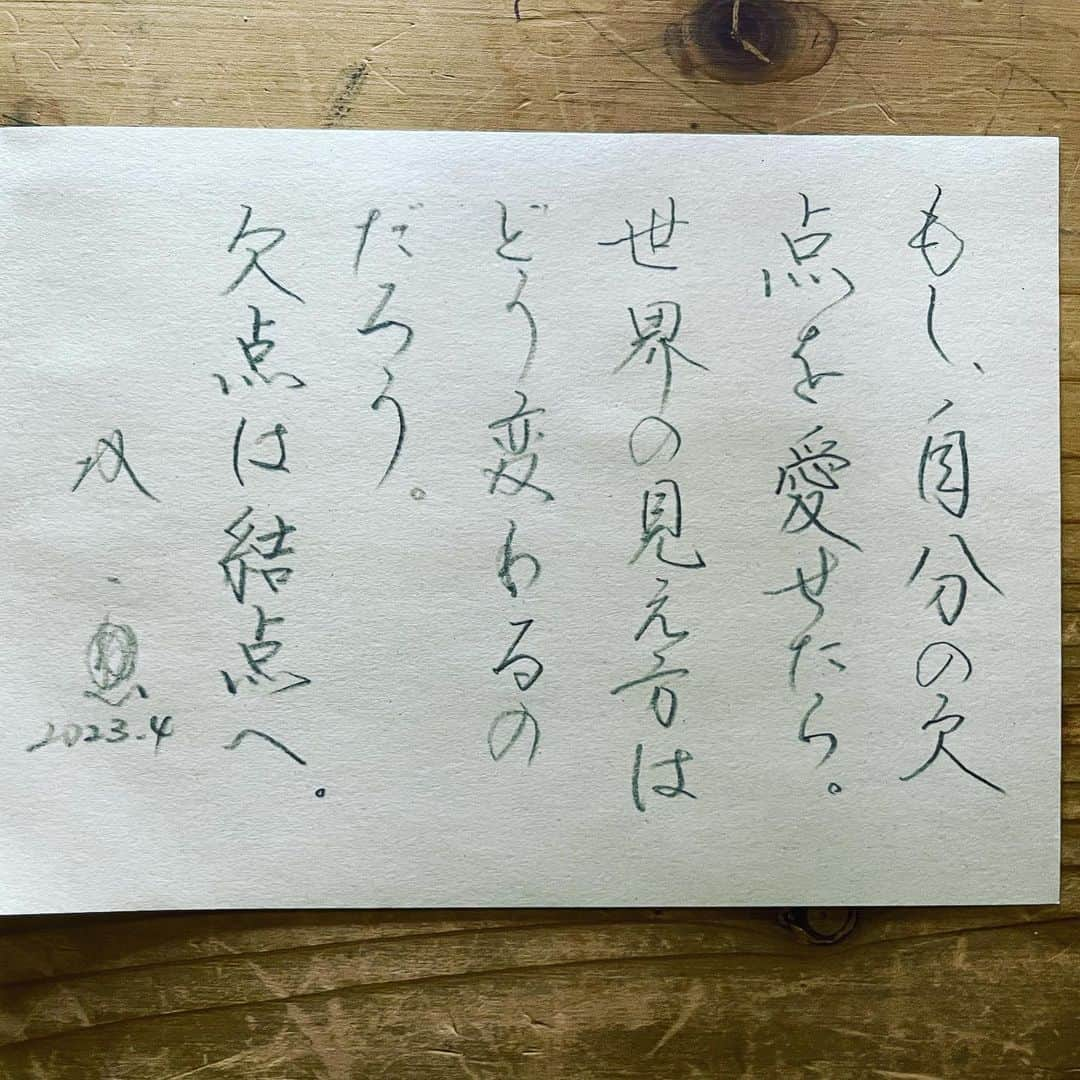 もし、自分の欠
点を愛せたら。
世界の見え方は
どう変わるの
だろう。
欠点は結点へ。
2023.4